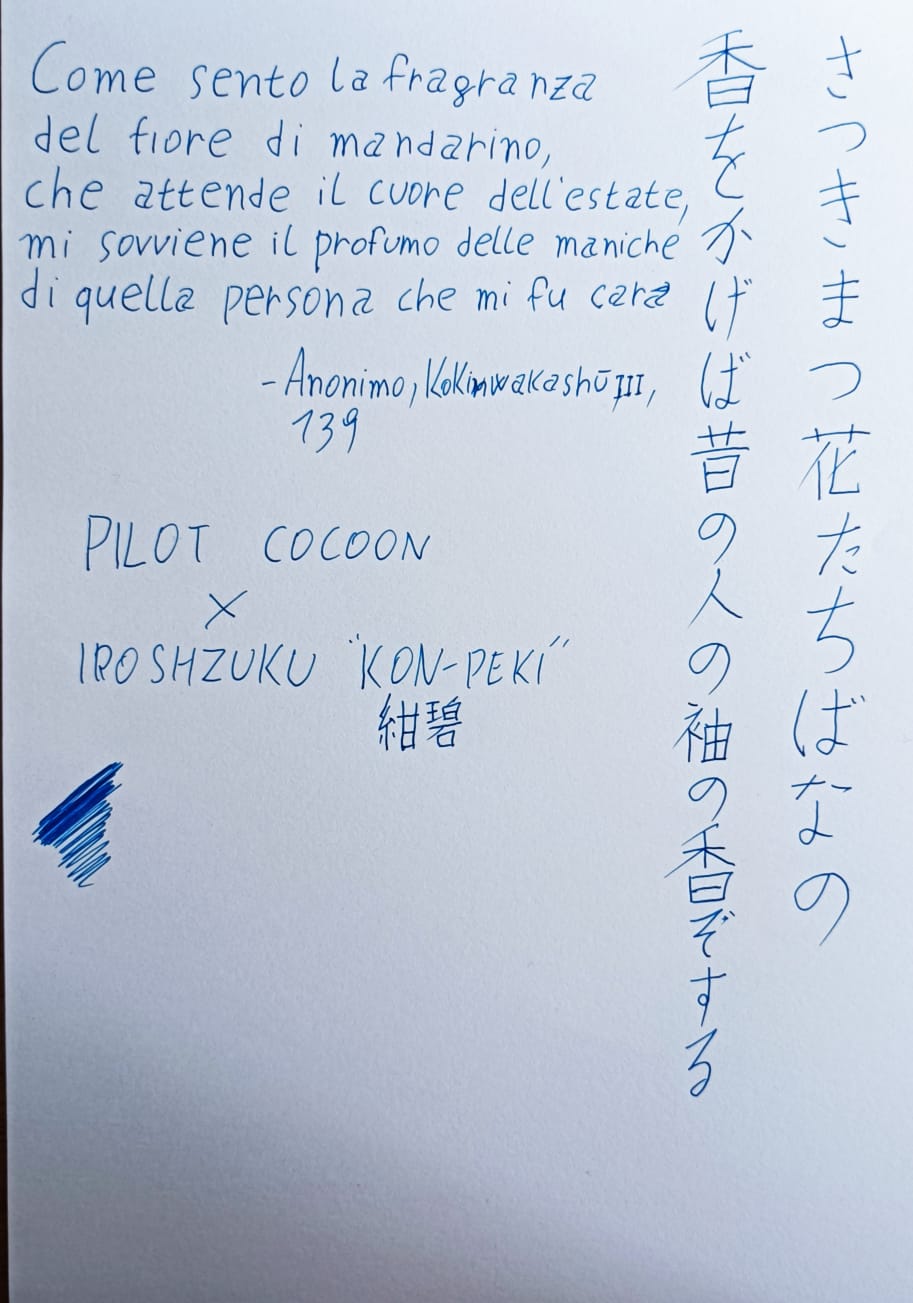 Come sento la fragranza
del fiore di mandarino,
che attende il cuore dell'estate,
mi sovviene il profumo delle maniche
di quella persona che mi fu cara
- Anonimo, Kokinwakashū III,
139
PILOT COCOON
×
IROSHZUKU "KON-PEKI"
紺碧
さつきまつ花たちばなの
香をかげば昔の人の袖の香ぞする